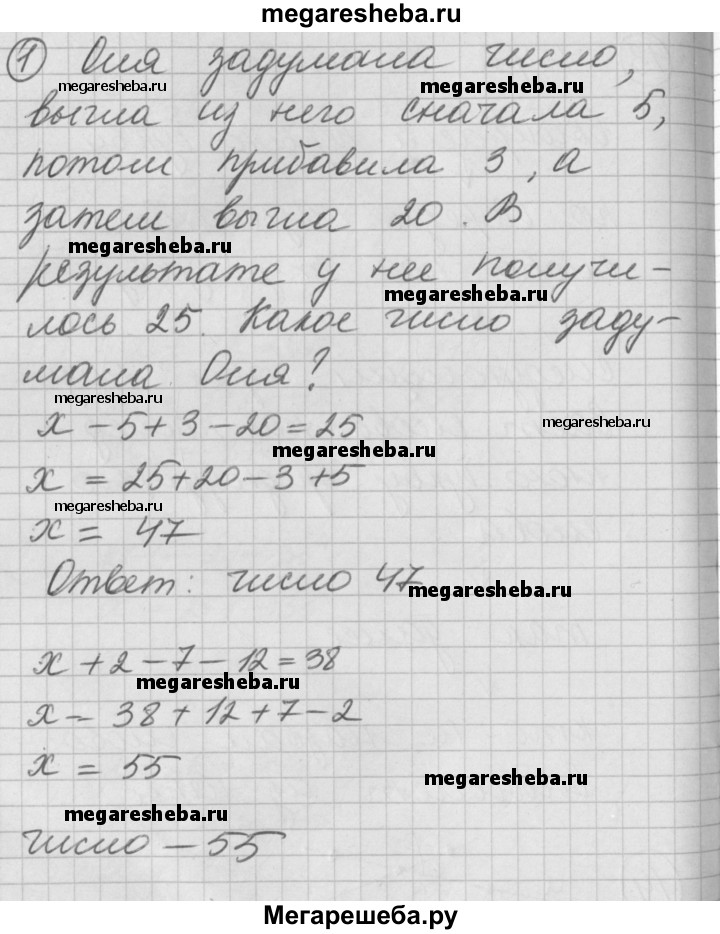 megaresheba.ru
① Оля задумала число,
megaresheba.ru
megaresheba.ru
вычла из него сначала 5,
потом прибавила 3, а
затем вычла 20. В
megaresheba.ru
результате у нее получи-
megaresheba.ru
лось 25. Какое число заду-
мала Оля?
megaresheba.ru
x - 5 + 3 - 20 = 25
megaresheba.ru
megaresheba.ru
x = 25 + 20 - 3 + 5
megaresheba.ru
x = 47
Ответ: число 47
megaresheba.ru
x + 2 - 7 - 12 = 38
megaresheba.ru
x - 38 + 12 + 7 - 2
x = 55
megaresheba.ru
megaresheba.ru
число - 55
Мегарешеба.ру